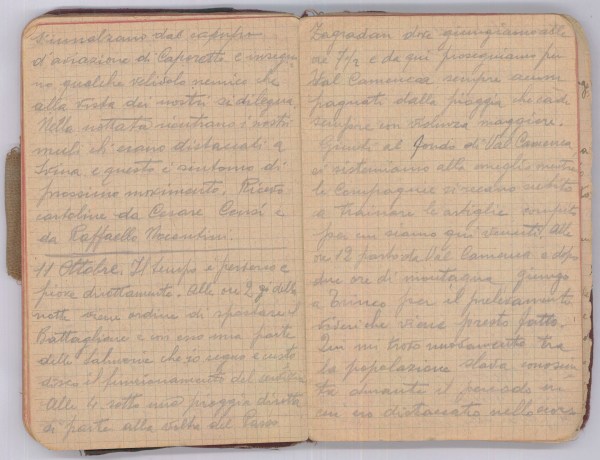 s'innalzano dal campo
d'aviazione di Caporetto e inseguo
no qualche velivolo nemico che
alla vista dei nostri si dilegua.
Nella nottata rientrano i nostri
muli ch'erano distaccati a
e questo è sintomo di
prossimo movimento. Ricevo
cartoline da Cesare Censi e
da Raffaello Nocentini.
11 Ottobre. Il tempo è perverso e
piove dirottamente. Alle ore 2 della
notte viene ordine di spostare il
Battaglione e con esso una parte
delle salmerie che io seguo e custo
disco il funzionamento del
Alle 4 sotto una pioggia dirotta
si parte alla volta del Passo
Zagradan dove giungiamo alle
ore 7 1/2 e da qui proseguiamo per
Val Camenca sempre accom
pagnati dalla pioggia che cade
sempre con violenza maggiore.
Giunti al fondo di Val Camenca
ci sistemiamo alla meglio mentre
le Compagnie si recano subito
a trainare le artiglierie compito
per cui siamo qui venuti. Alle
ore 12 parto da Val Camenca e dopo
due ore di montagna giungo
a per il prelevamento
viveri che viene presto fatto.
Qui mi trovo nuovamente tra
la popolazione slava conosciu
ta durante il periodo in
cui ero distaccato nella